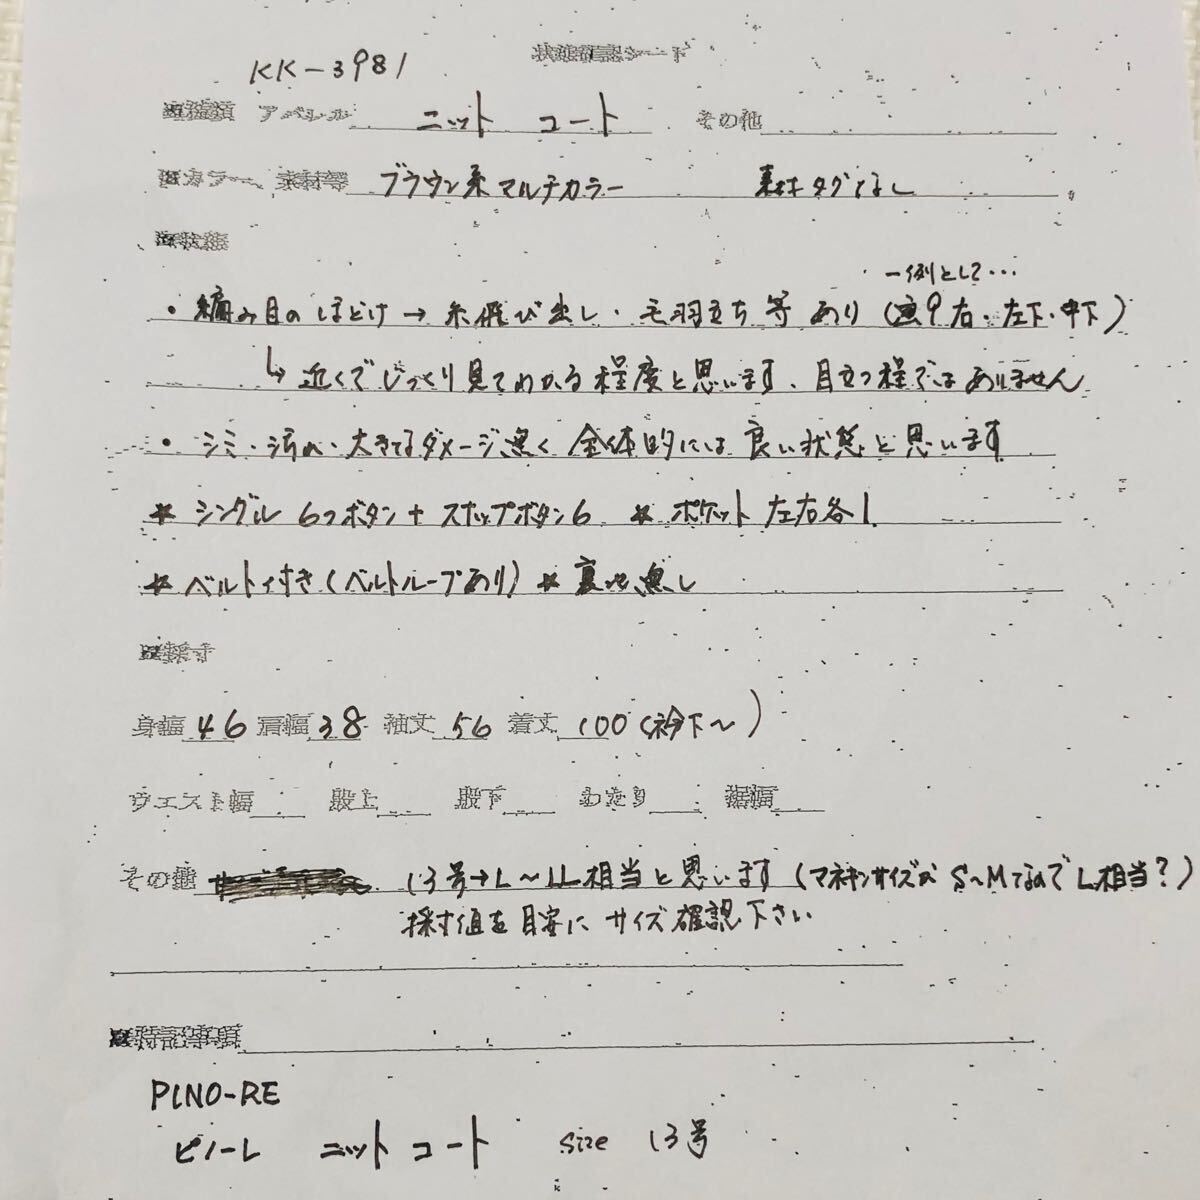 KK-3981
状態確認シート
■種類 アパレル ニット コート その他
■カラー、素材等 ブラウン系マルチカラー 素材タグなし
■状態
一例として…
・編み目のほどけ→糸飛び出し・毛羽立ち等あり(画9右・左下・中下)
↳近くでじっくり見てわかる程度と思います、目立つ程ではありません
・シミ・汚れ・大きなダメージ無く全体的には良い状態と思います
☆シングル6つボタン+スナップボタン6 ☆ポケット左右各1
☆ベルト付き(ベルトループあり)☆裏地無し
■採寸
身幅46 肩幅38 袖丈56 着丈100(衿下～)
ウエスト幅 股上 股下 わたり 裾幅
その他 13号→L～LL相当と思います(マネキンサイズがS～MなのでL相当?)
採寸値を目安にサイズ確認下さい
■特記事項
PINO-RE
ピノーレ ニットコート size 13号